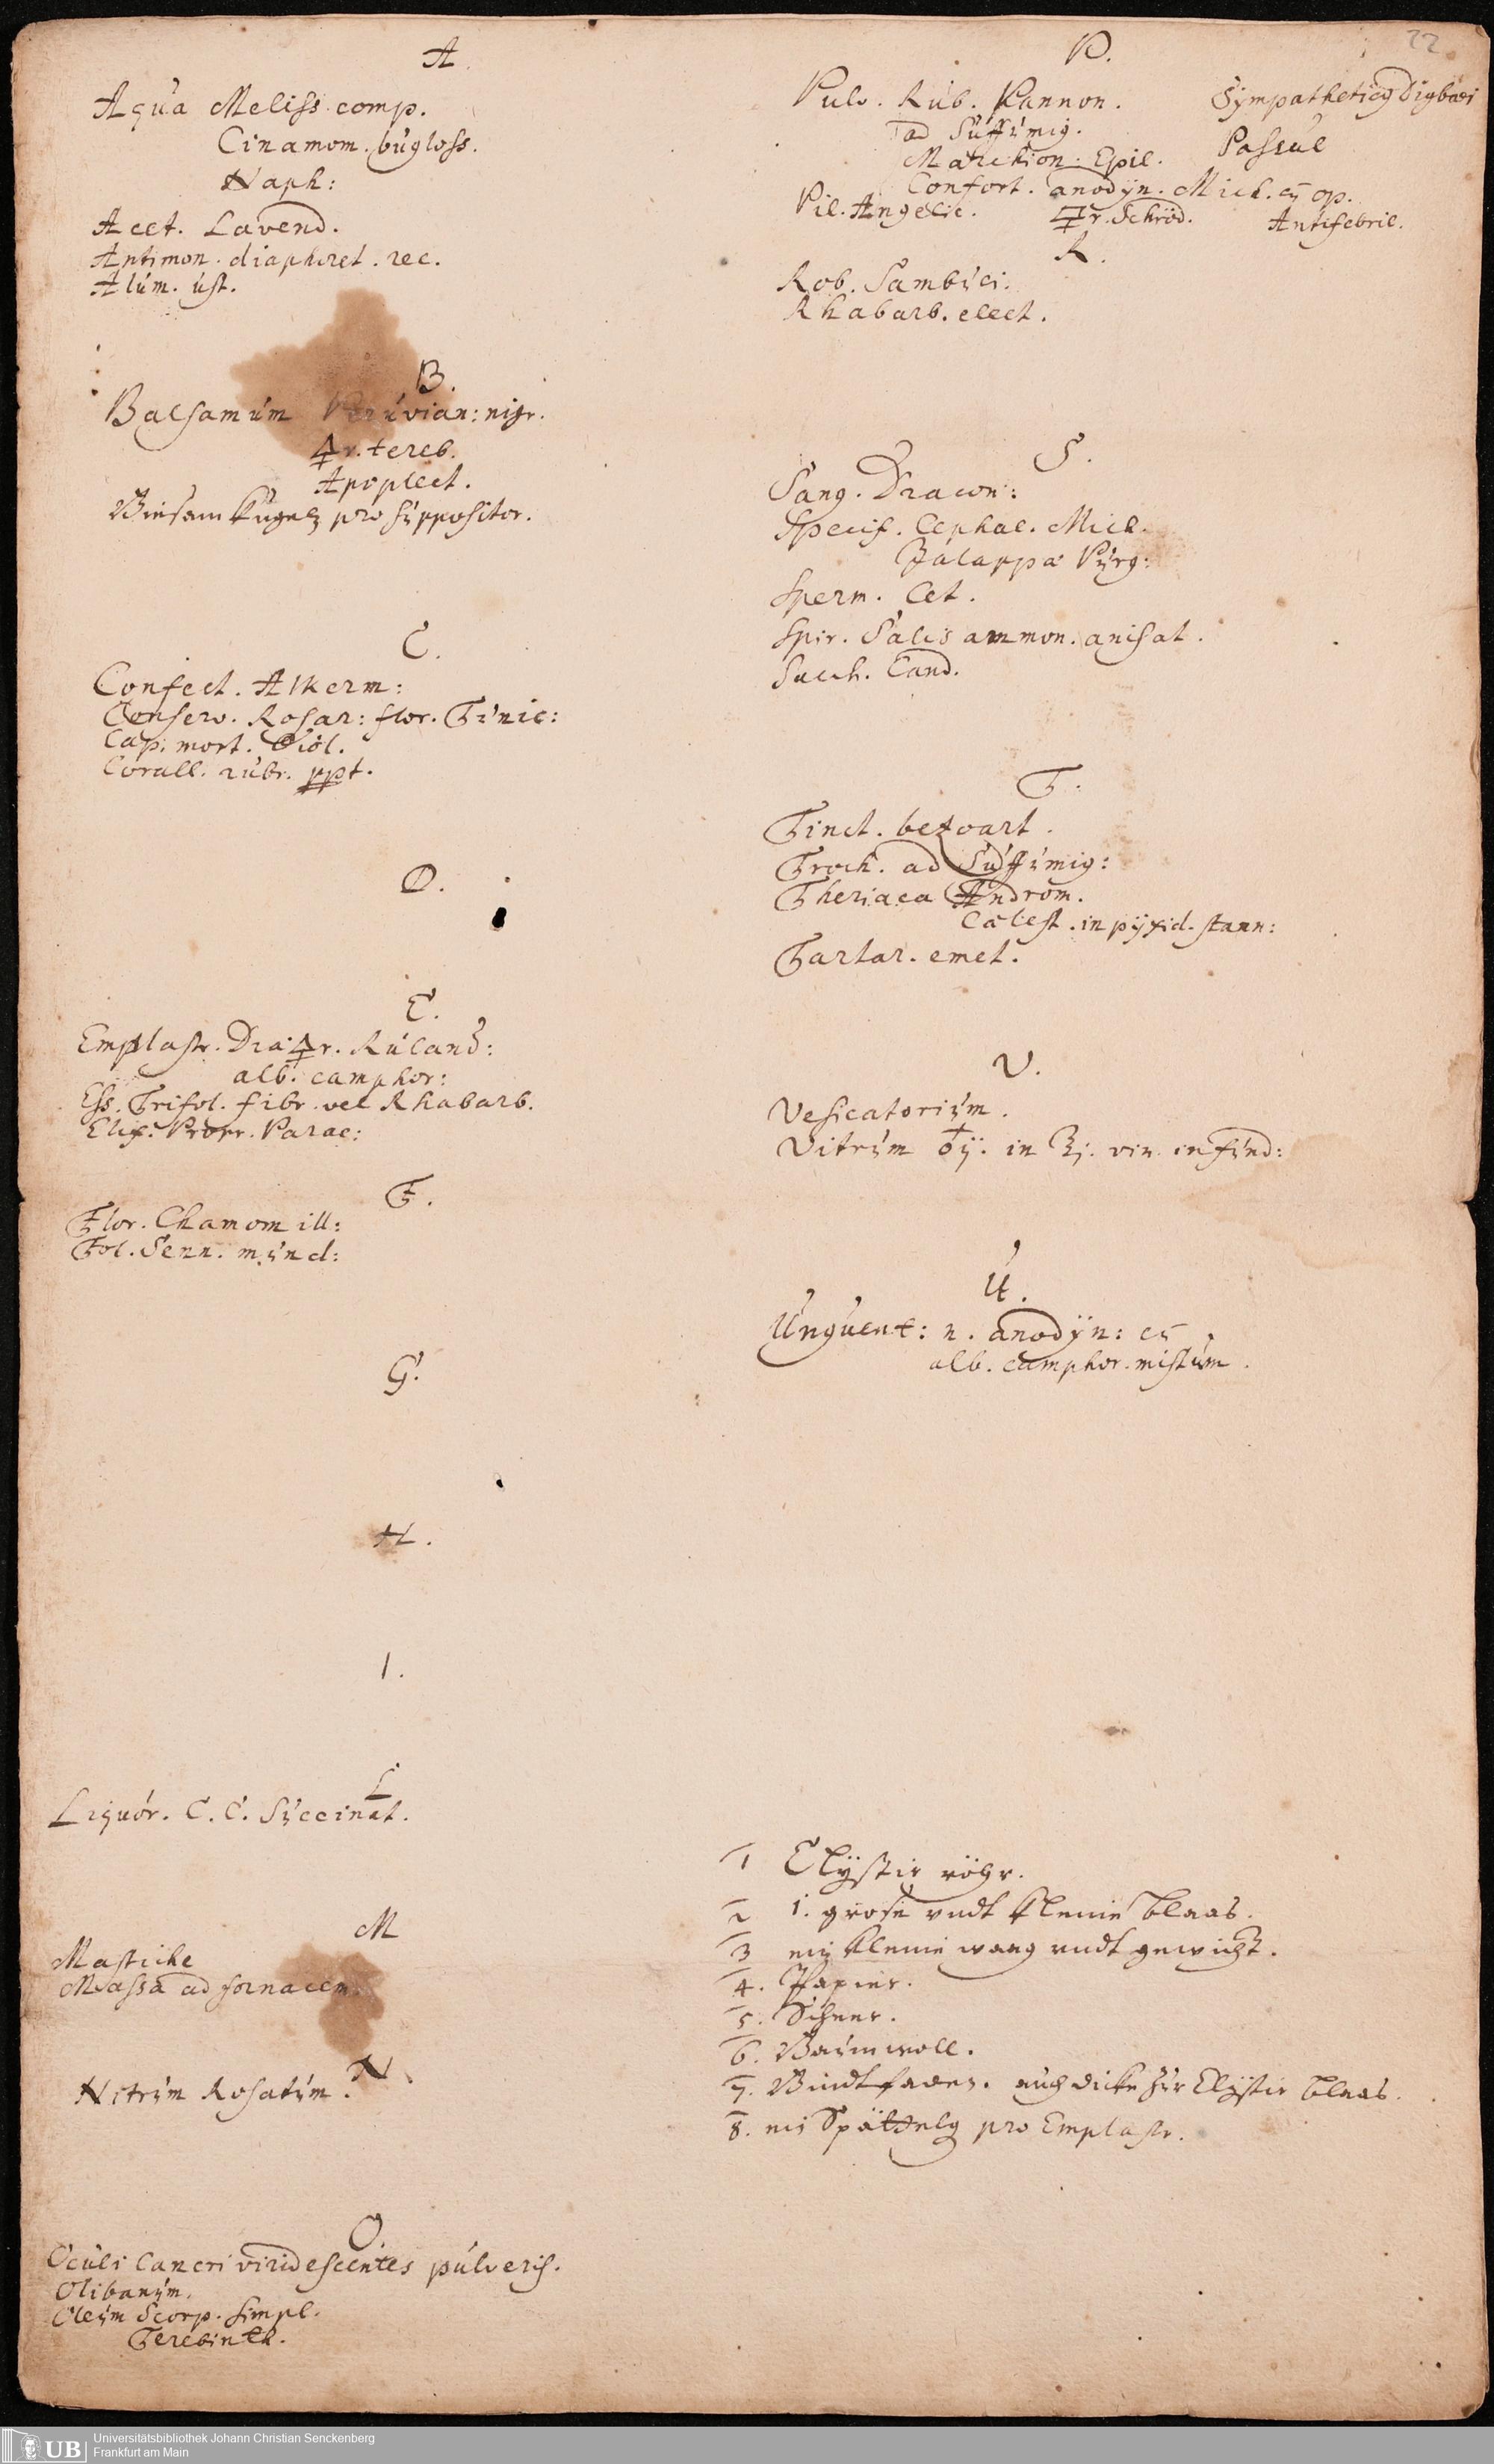 A.
Aqua Meliss. comp.
Cinamom. bugloss.
Naph:
Acet. Lavend.
Antimon. diaphoret. rec.
Alum. ust.
B.
Balsamum Peruvian: nigr.
🜍r. tereb.
Apoplect.
Biesam Kugeln pro suppositor.
C.
Confect. Alkerm:
Conserv. Rosar: flor. Tunic:
Cap. mort. Viol.
Corall. rubr. ppt.
D.
E.
Emplastr. Dia🜍r. Ruland:
alb. camphor:
Ess. Trifol. fibr. vel Rhabarb.
Elix. Propr. Parac:
F.
Flor. Chamomill:
Fol. Senn. mund:
G.
H.
I.
L
Liquor. C. C. Succinat.
M
Mastiche
Massa ad fornacem
N.
Nitrum Rosatum.
O.
Oculi Cancri viridescentes pulveris.
Olibanum.
Oleum Scorp. simpl.
Terebinth.
22
P.
Pulv. Rub. Pannon. Sympathetic9 Digbaei
ad Suffumig. Passul
Marchion. Epil.
Confort. anodyn. Mich. c͞u op.
Pil. Angelic. 🜍r. Schröd. Antifebril.
R.
Rob. Sambuci:
Rhabarb. elect.
S.
Sang. Dracon:
Specif. Cephal. Mich.
Jalappæ Purg:
Sperm. Cet.
Spir. Salis ammon. anisat.
Sacch. Cand.
T.
Tinct. bezoart.
Troch. ad Suffumig:
Theriaca Androm.
Cœlest. in pyxid. stann:
Tartar. emet.
V.
Vesicatorium.
Vitrum ♁ij. in ℥j. vin. infund:
U.
Unguent: n. anodyn: c͞u
alb. camphor. mistum.
1 Clystir röhr.
2 1. grose undt kleine blaas.
3 ein kleine waag undt gewicht.
4. Papier.
5. Scheer.
6. Baumwoll.
7. Bindtfaden. auch dicke zur Clystir blaas.
8. ein Spättelg pro Emplastr.
UB
Universitätsbibliothek Johann Christian Senckenberg
Frankfurt am Main